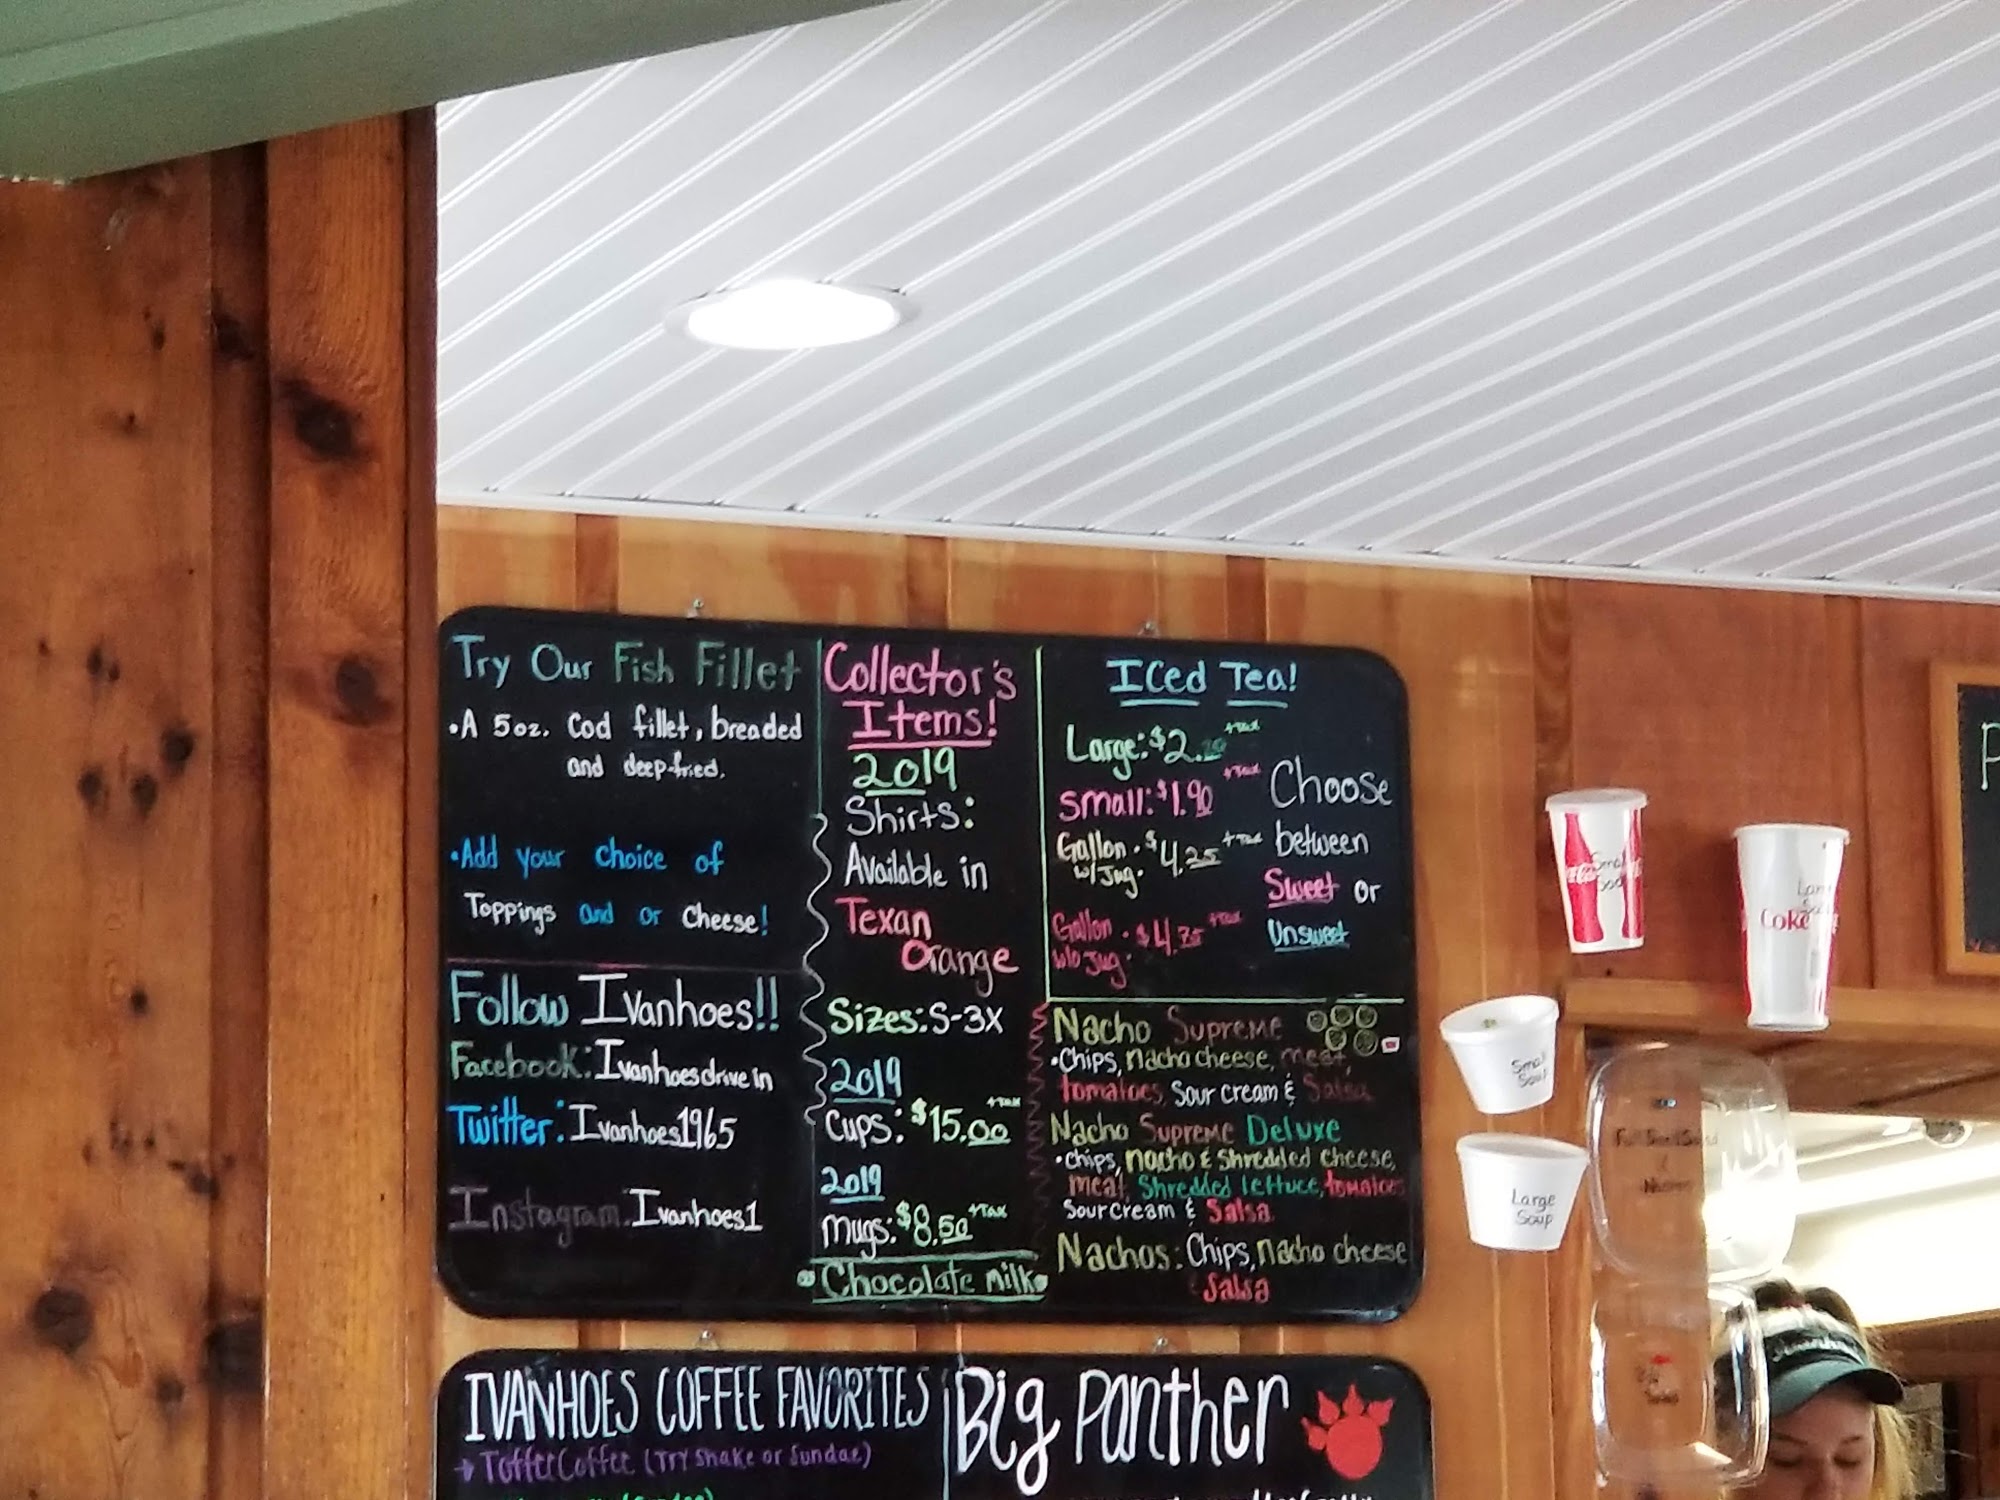 Try Our Fish Fillet
•A 5oz. Cod fillet, breaded
and deep-fried.
•Add your choice of
Toppings and or Cheese!
Follow Ivanhoes!!
Facebook: Ivanhoesdrivein
Twitter: Ivanhoes1965
Instagram: Ivanhoes1
Collector's
Items!
2019
Shirts:
Available in
Texan
Orange
Sizes: S-3X
2019
Cups: $15.00 +Tax
2019
Mugs: $8.50 +Tax
Chocolate milk
Iced Tea!
Large: $2. +Tax
Small: $1.90 +Tax
Gallon • $4.25 +Tax
w/ Jug.
Gallon • $4.75 +Tax
w/o Jug.
Choose
between
Sweet or
Unsweet
Nacho Supreme
•Chips, nacho cheese, meat,
tomatoes, Sour cream & Salsa
Nacho Supreme Deluxe
•Chips, nacho & Shredded cheese,
meat, Shredded lettuce, tomatoes
Sour cream & Salsa
Nachos: Chips, nacho cheese
Salsa
IVANHOES COFFEE FAVORITES
→ Toffee Coffee (Try Shake or Sundae)
Big Panther
Small
Soda
Coke
Small
Soup
Large
Soup